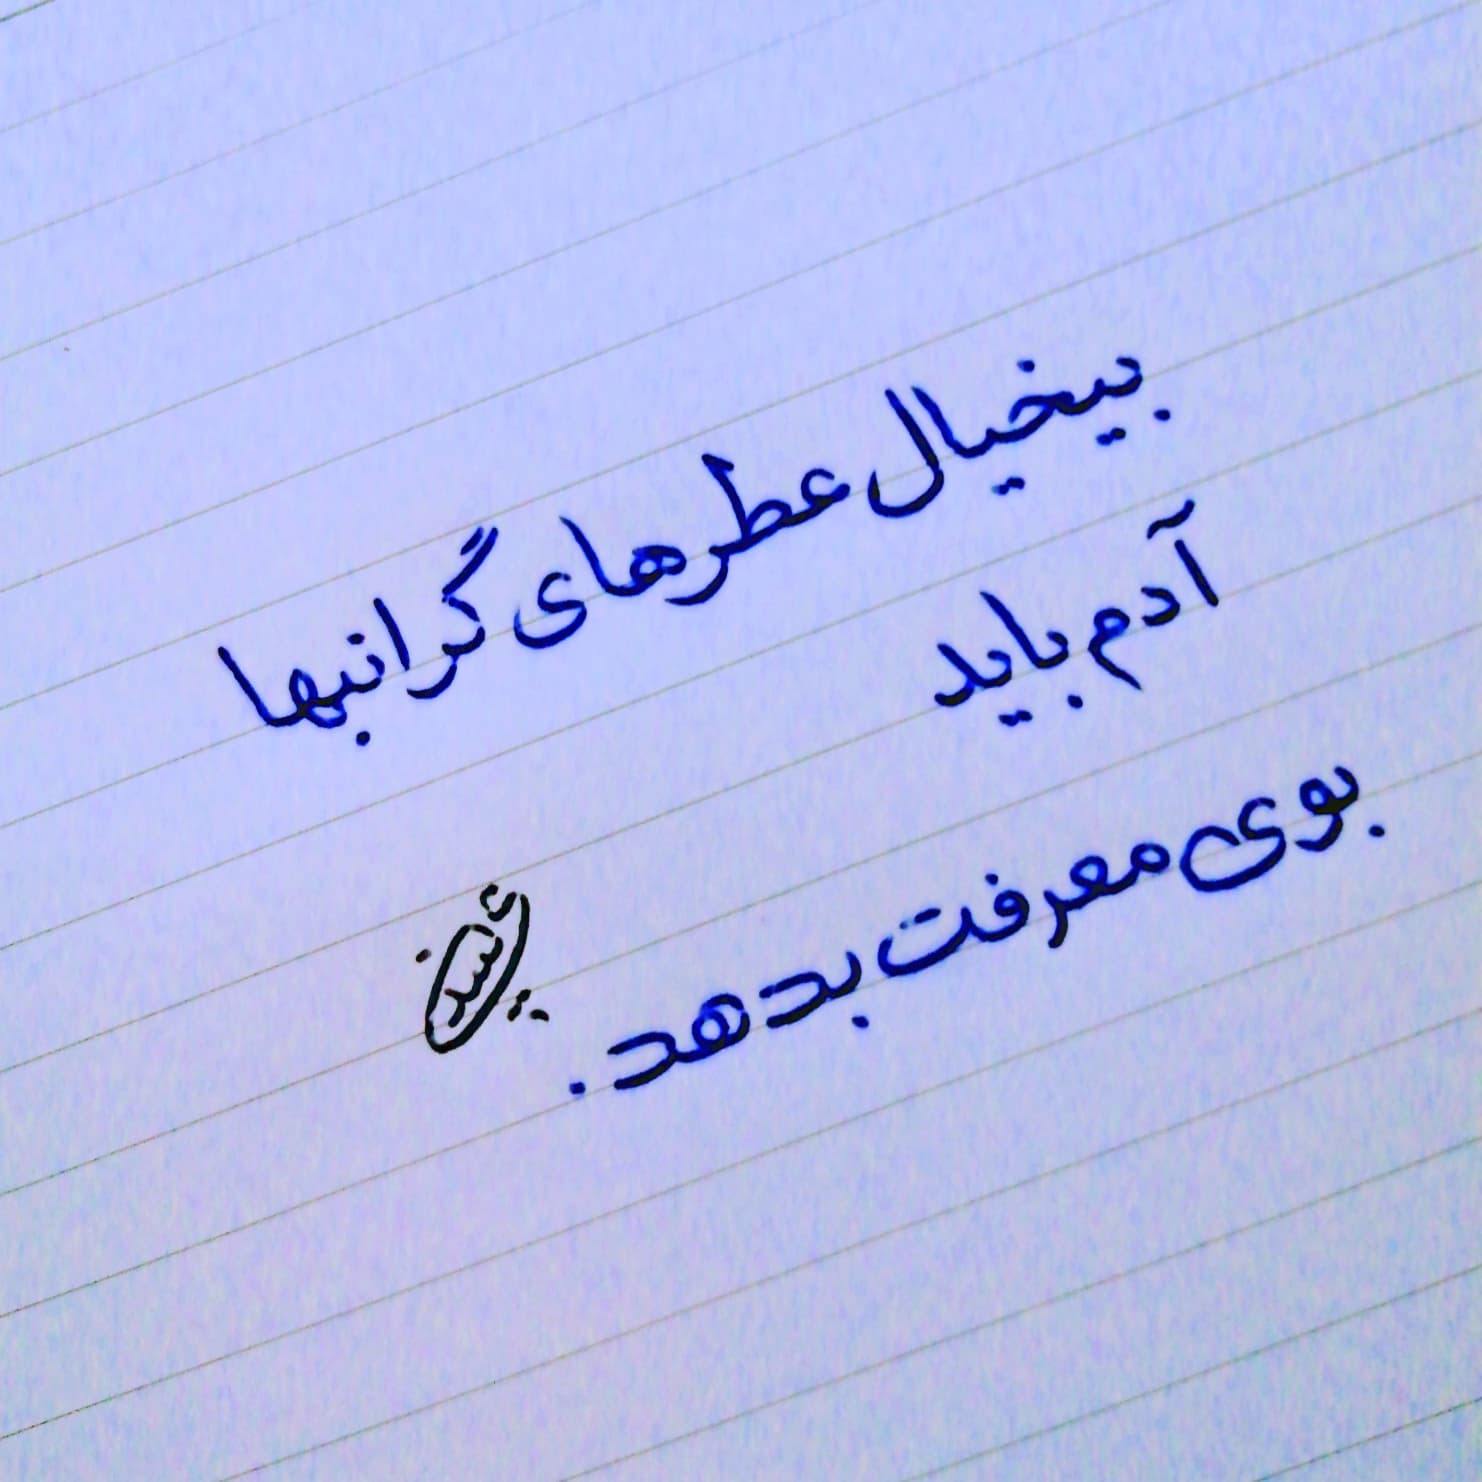 بیخیال عطرهای گرانبها
آدم باید
بوی معرفت بدهد.